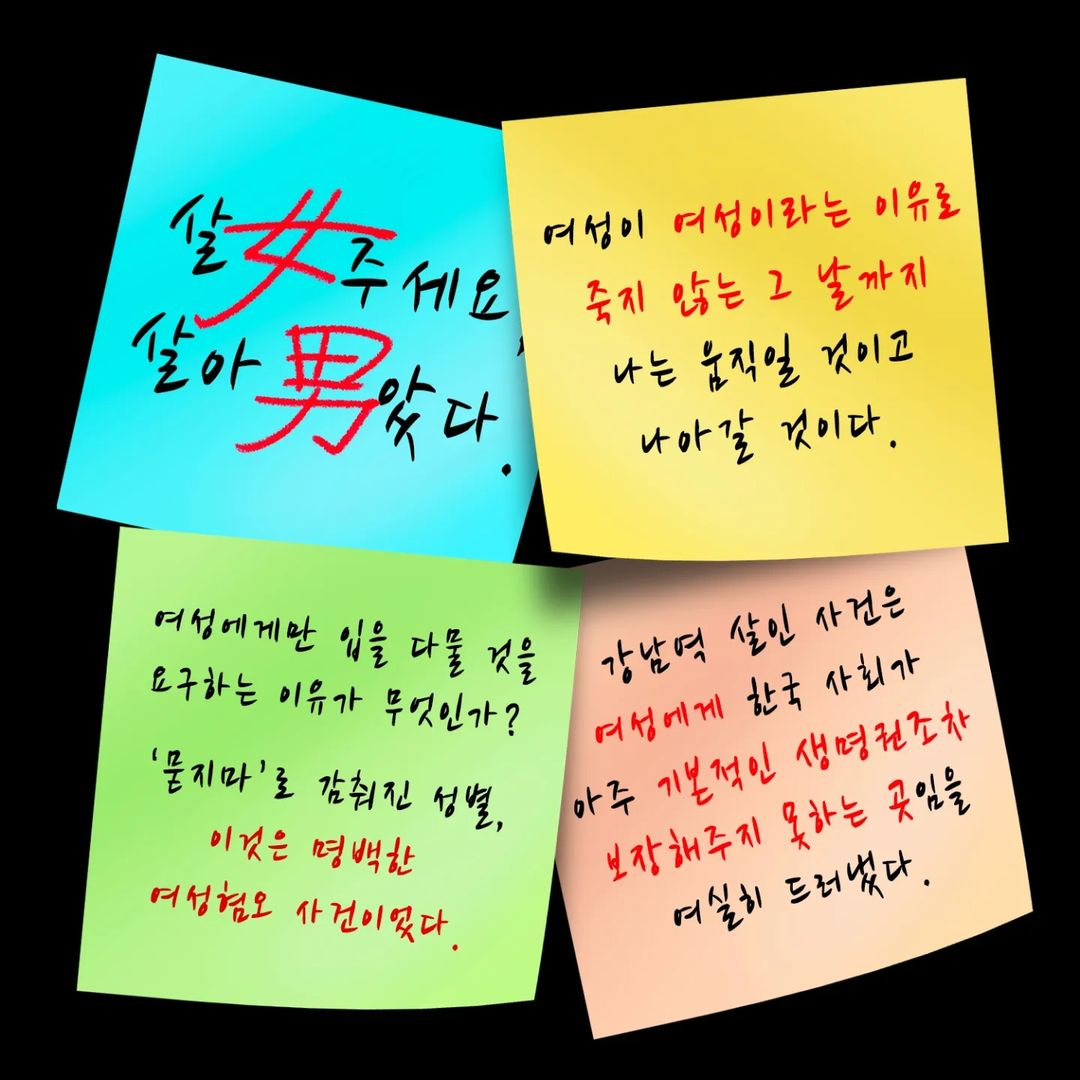 살女주세요,
살아男았다.
여성이 여성이라는 이유로
죽지 않는 그 날까지
나는 움직일 것이고
나아갈 것이다.
여성에게만 입을 다물 것을
요구하는 이유가 무엇인가?
'묻지마'로 감춰진 성별,
이것은 명백한
여성혐오 사건이었다.
강남역 살인 사건은
여성에게 한국 사회가
아주 기본적인 생명권조차
보장해주지 못하는 곳임을
여실히 드러냈다.